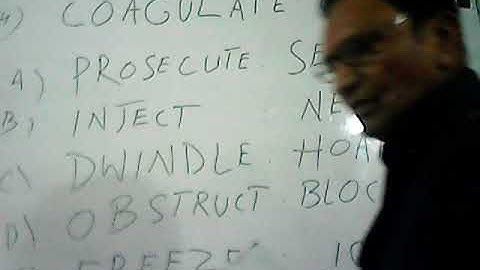 4) COAGULATE
A) PROSECUTE SE
B) INJECT NE
C) DWINDLE. HOA
D) OBSTRUCT. BLOC
FREEZE